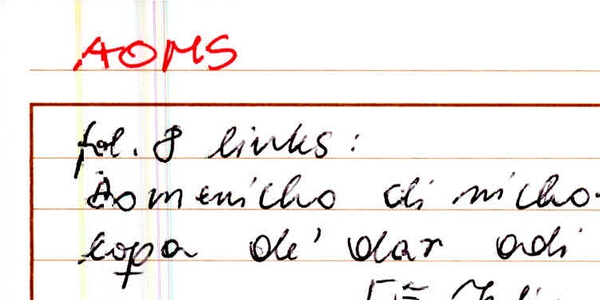 AOMS
fol. 8 links:
Domenicho di nicho-
lopa de' dar adi